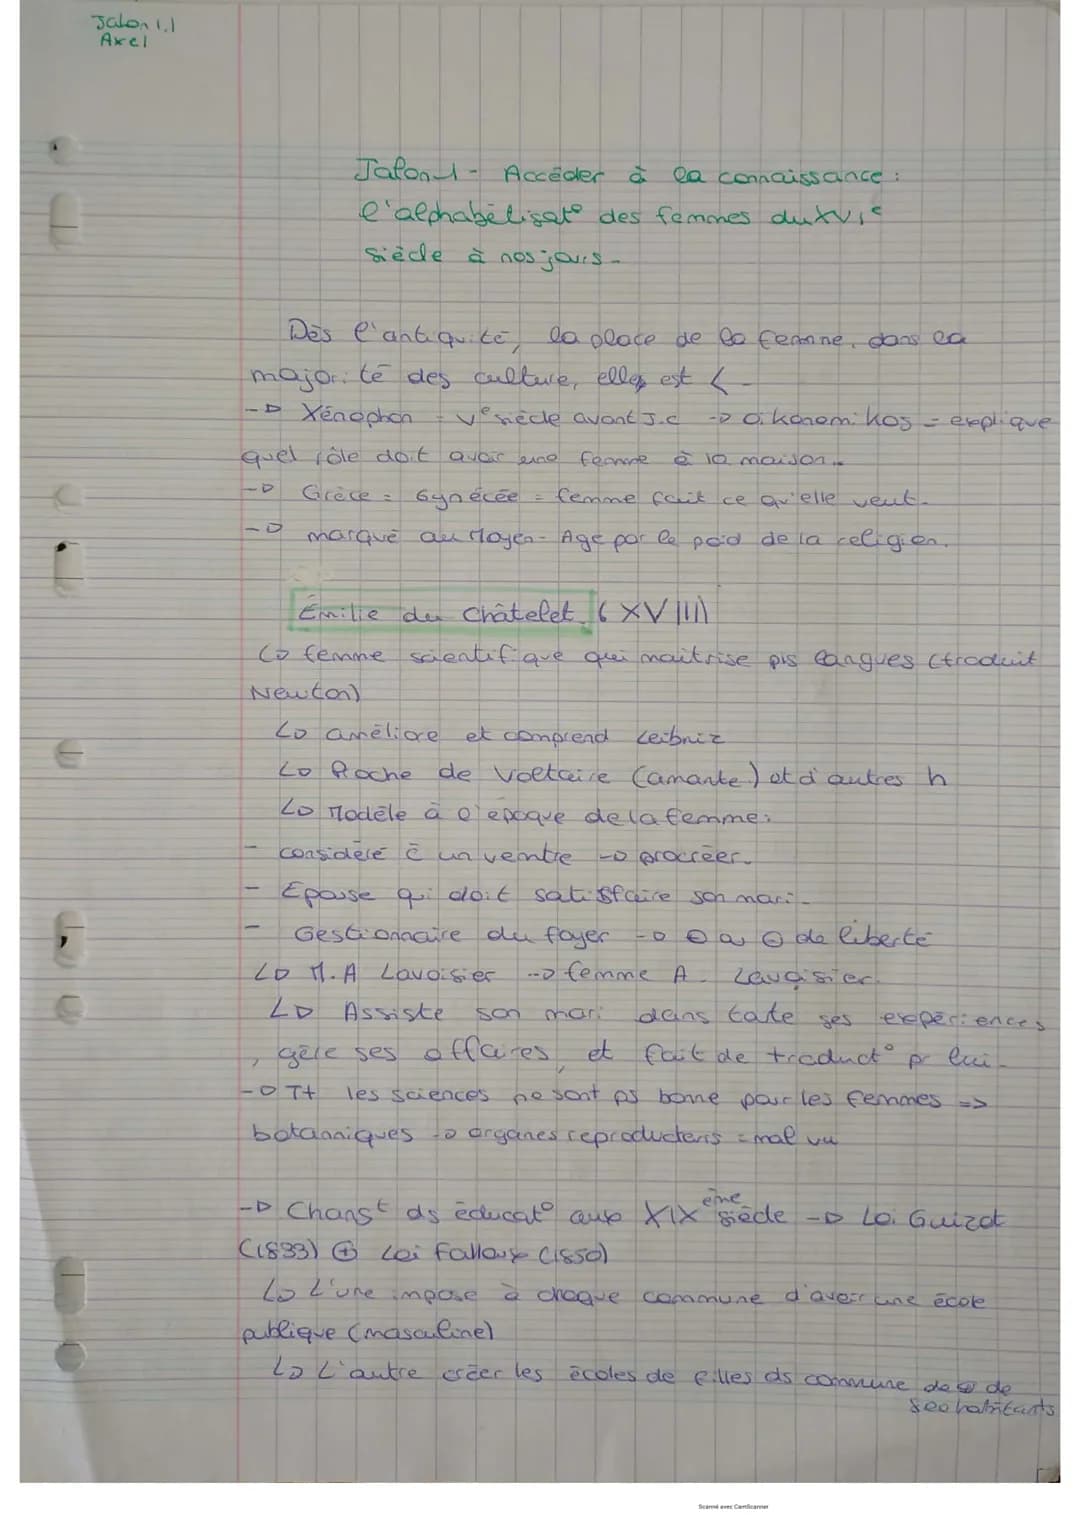 Jalon 1.1
Axel
Jalon 1 - Accéder à la connaissance :
l'alphabétisat° des femmes du XVIe
siècle à nos jours -
Dès l'antiquité, la place de la femme, dans la
majorité des culture, elles est < -
-> Xénophon = Ve siècle avant J.C -> Oikonomikos = explique
quel rôle doit avoir une femme à la maison -
-> Grèce = Gynécée = femme fait ce qu'elle veut -
-> marqué au Moyen-Age par le poid de la religion.
Émilie du Châtelet (XVIII)
↳ femme scientifique qui maitrise pls langues (traduit
Newton)
↳ améliore et comprend Leibniz
↳ Proche de Voltaire (amante) et d'autres h
↳ Modèle à l'époque de la femme :
- considéré c̄ un ventre -> procréer -
- Epouse qui doit satisfaire son mari -
- Gestionnaire du foyer -> ⊖ de liberté
↳ M.A Lavoisier --> femme A. Lavoisier.
↳ Assiste son mari dans toute ses expériences
, gère ses affaires, et fait de traduct° pr lui -
-> Tt les sciences ne sont ps bonne pour les femmes =>
botanniques -> organes reproducteurs = mal vu
-> Changt ds éducat° aux XIXème siècle -> Loi Guizot
(1833) ⊕ Loi Falloux (1850)
↳ L'une impose à chaque commune d'avoir une école
publique (masculine)
↳ L'autre créer les écoles de filles ds commune de ⊕ de
800 habitants
Scanné avec CamScanner